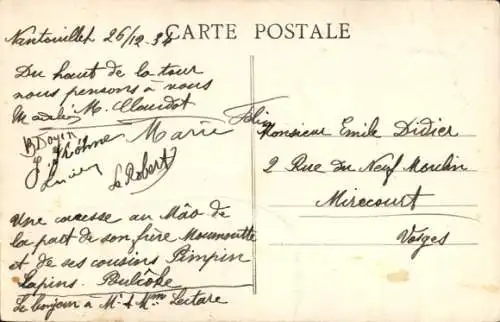 Nantouillet 26/12.34
CARTE POSTALE
Du haut de la tour
nous pensons à vous
M. Claudot
R Doyen
Marie
Lucien
Le Robert
Une caresse au Mâo de
la part de son frère Moumoutte
et de ses cousins Pimpin
Lapins.
Le bonjour à Mr & Mme Lectare
Monsieur Emile Didier
2 Rue du Neuf Moulin
Mirecourt
Vosges